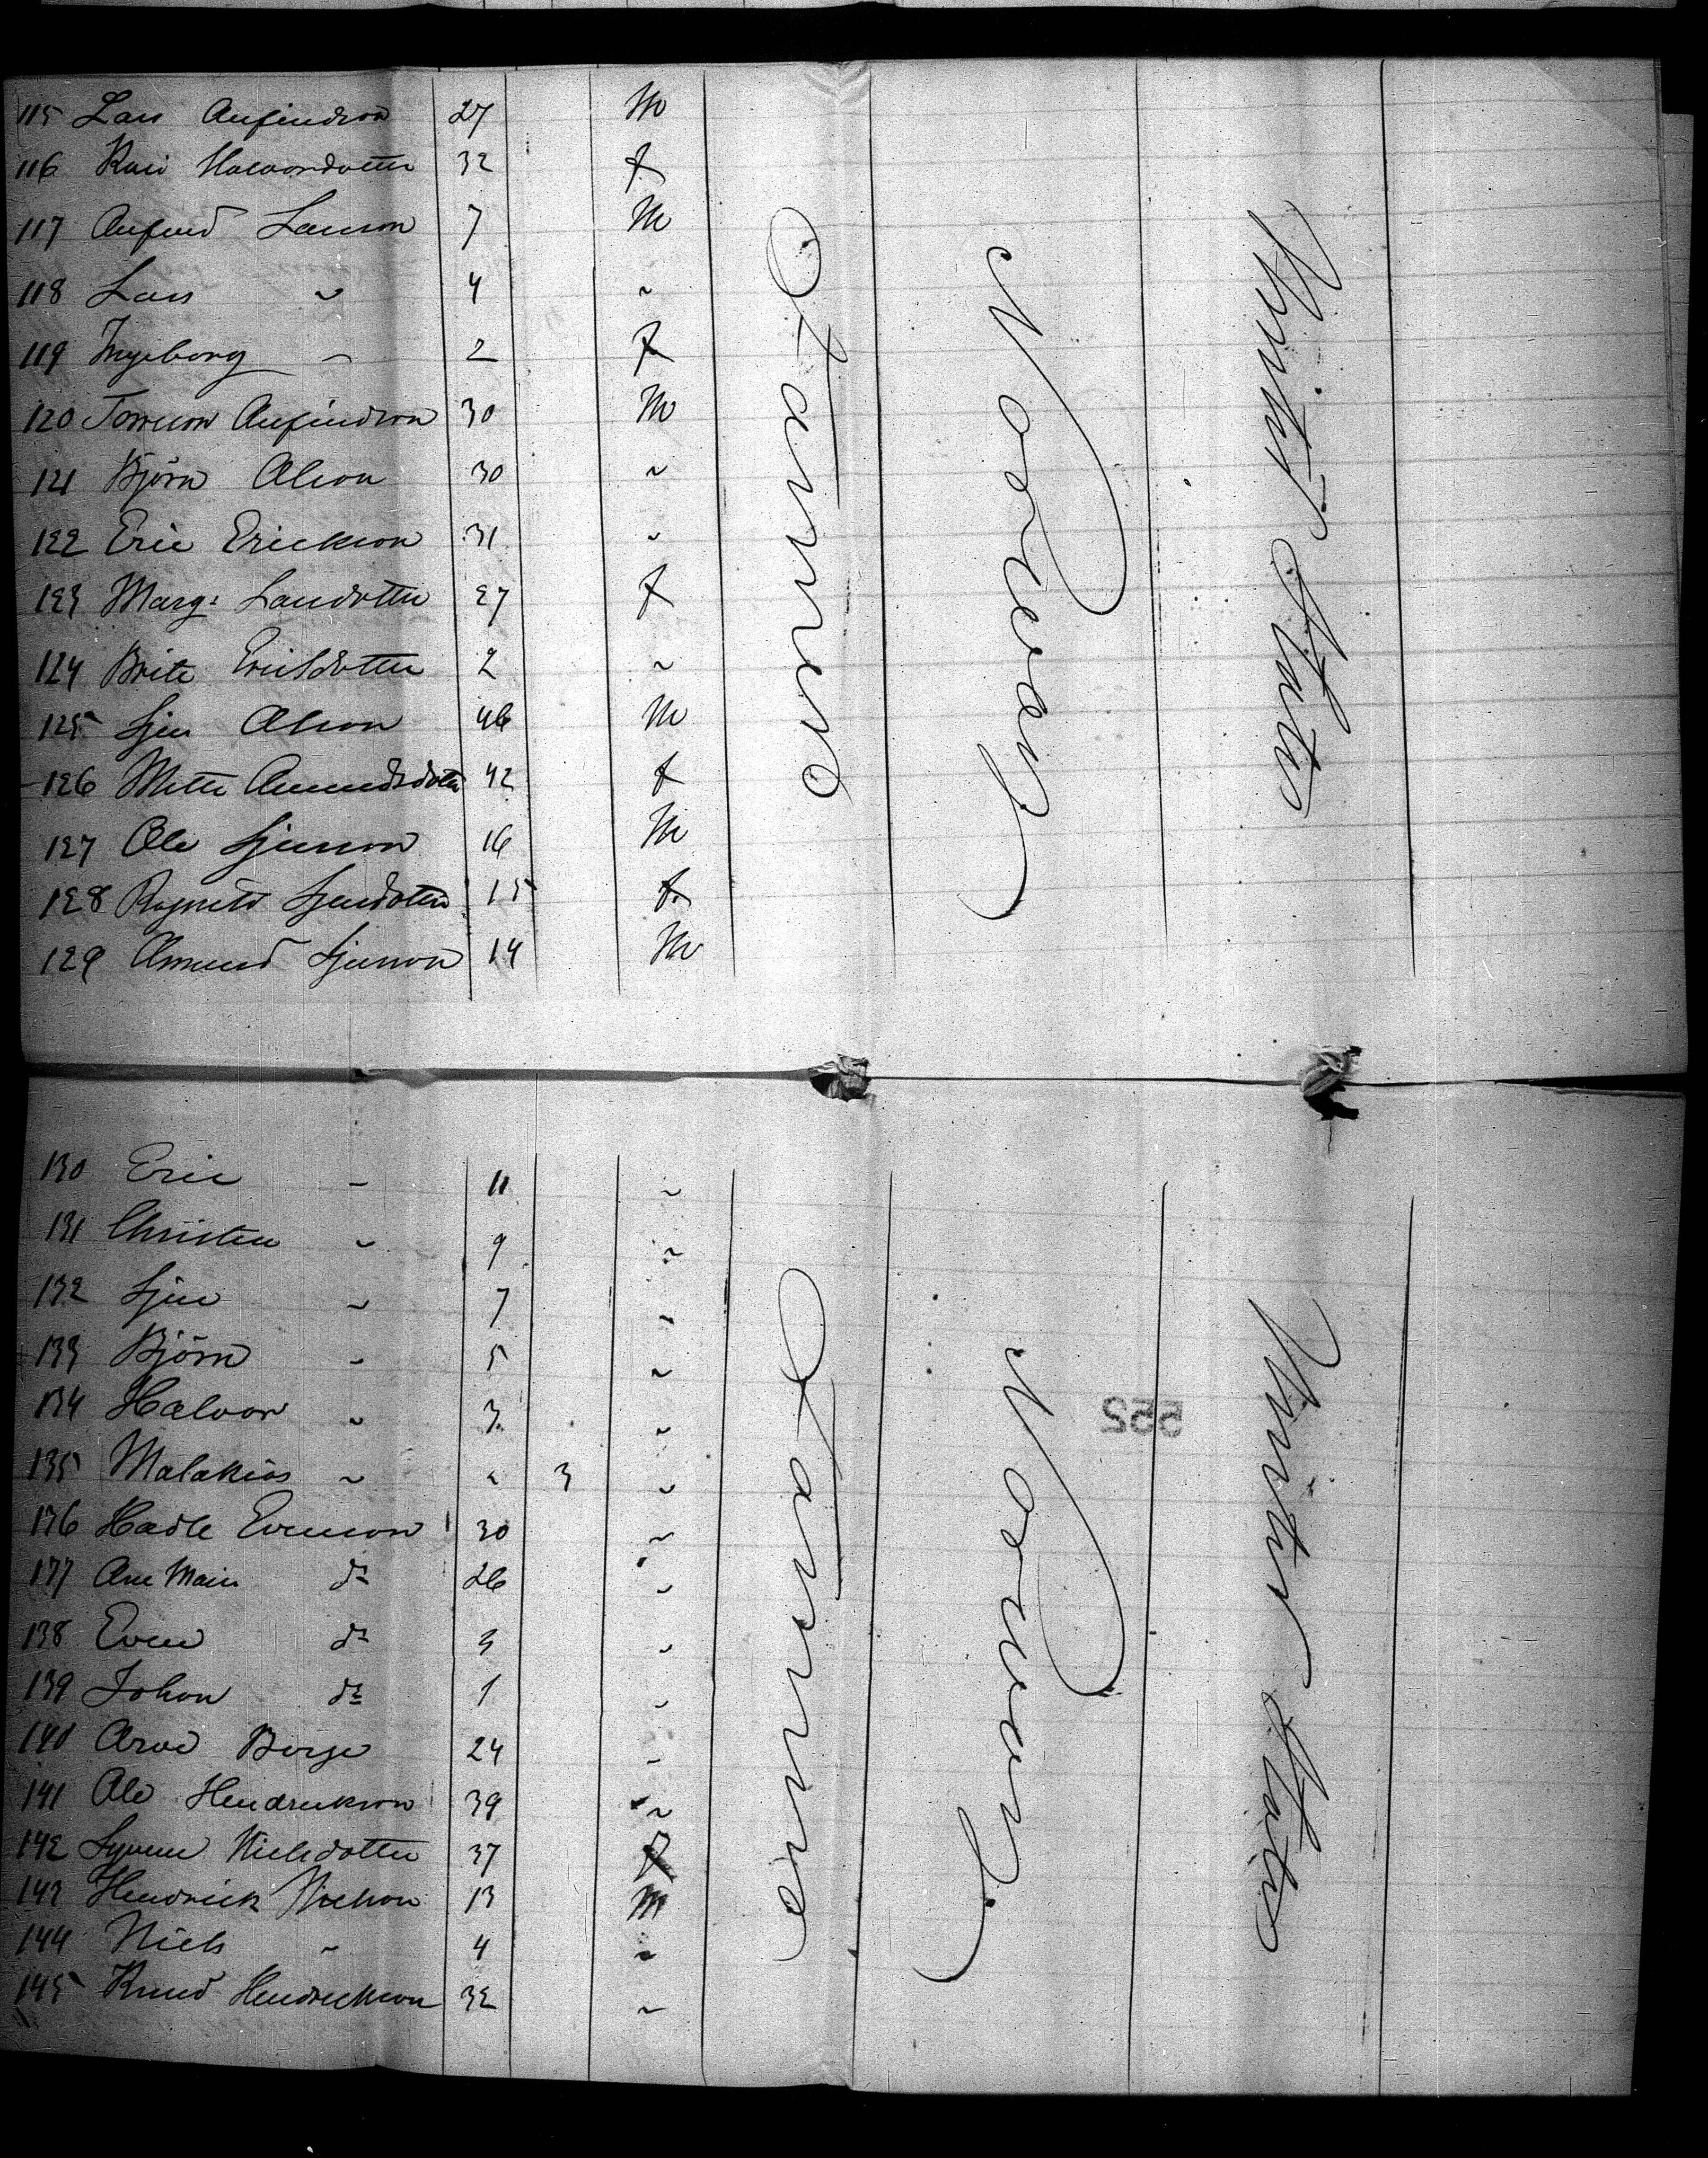 115 Lars Anfindson 27 M
116 Kari Halvorsdotter 32 f
117 Anfind Larson 7 M
118 Lars " 4 "
119 Ingeborg " 2 f
120 Anfindson 30 M
121 Björn Olson 30 "
122 Eric Erickson 31 "
123 Marg: Larsdotter 27 f
124 Brite Ericsdotter 2 "
125 Sjur Olson 46 M
126 Mette Amundsdotter 42 f
127 Ole Sjurson 16 M
128 Ragnild Sjursdotter 15 f
129 Amund Sjurson 14 M
Farmers
Norway
United States
130 Eric " 11 "
131 Christen " 9 "
132 Sjur " 7 "
133 Björn " 5 "
134 Halvor " 3 "
135 Malakias " " 3 "
136 Hadle Evenson 30 "
137 Ane Marie do 26 "
138 Even do 3 "
139 Johan do 1 "
140 Arve Berge 24 "
141 Ole Hendrickson 39 "
142 Nielsdotter 37 f
143 Hendrick Nielson 13 M
144 Niels " 4 "
145 Knud Hendrickson 32 "
Farmers
Norway
United States
552